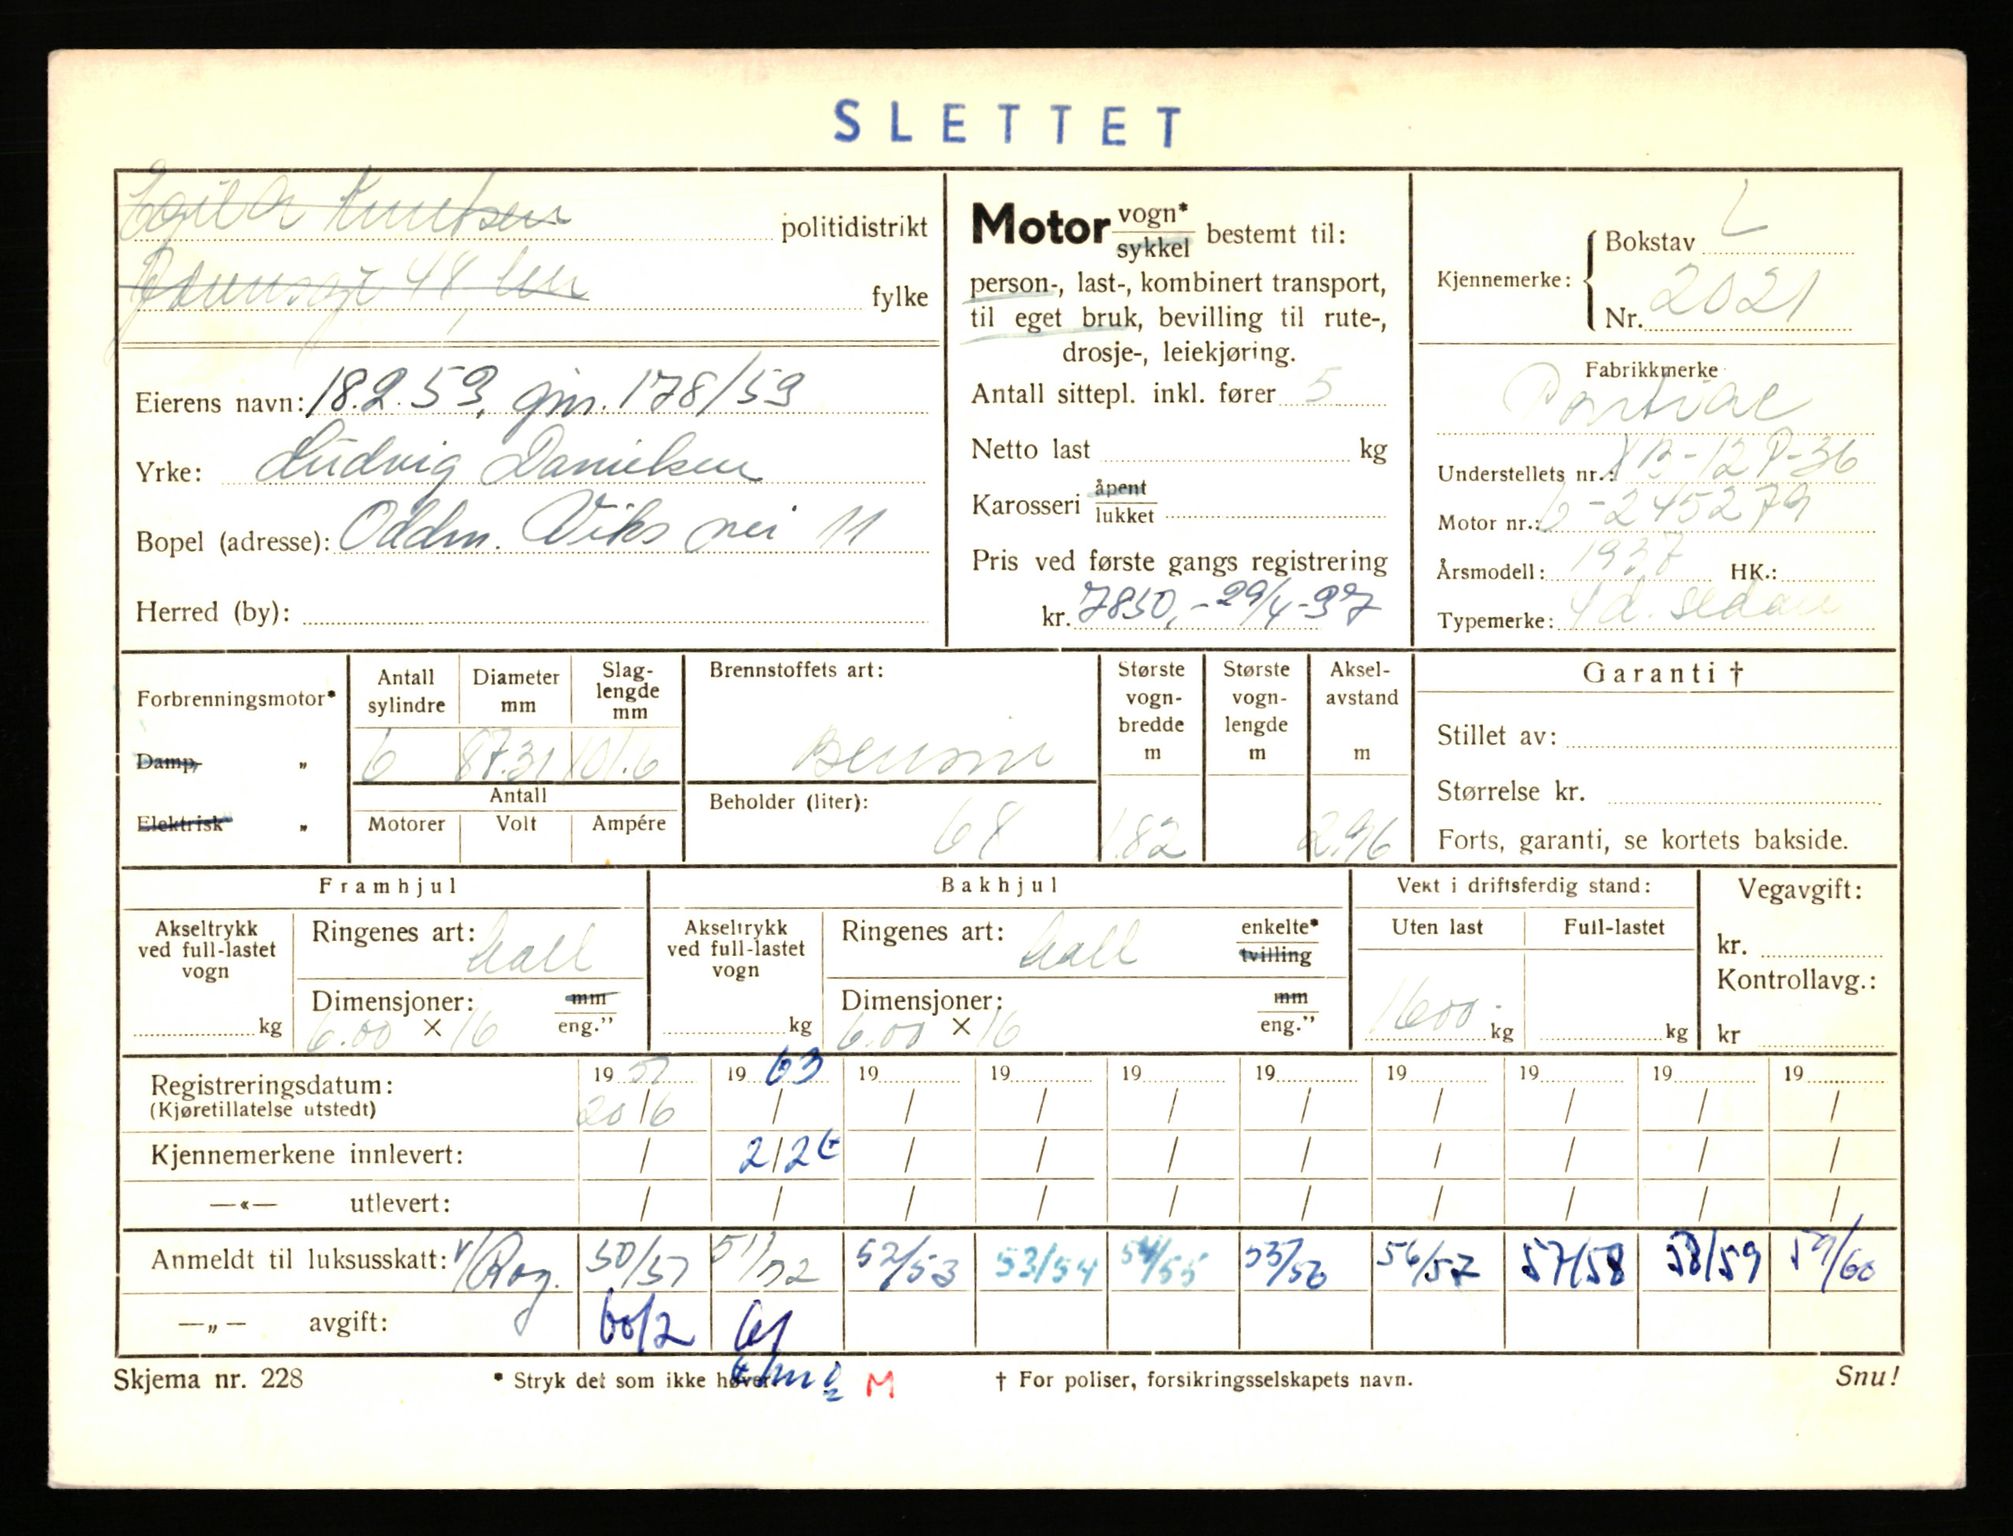 SLETTET
Egil A Knutsen politidistrikt
48, fylke
Eierens navn: 18.2.59, gjn. 178/59
Yrke: Ludvig Danielsen
Bopel (adresse): Oddm. Viks vei 11
Herred (by):
Motor vogn* sykkel bestemt til:
person-, last-, kombinert transport,
til eget bruk, bevilling til rute-,
drosje-, leiekjøring.
Antall sittepl. inkl. fører 5
Netto last kg
Karosseri åpent lukket
Pris ved første gangs registrering
kr. 7850,- 29/4-37
Kjennemerke: Bokstav L
Nr. 2021
Fabrikkmerke
Pontiac
Understellets nr.: XB-12 P-36
Motor nr.: 6-245279
Årsmodell: 1937 HK.:
Typemerke: 4 d. sedan
Forbrenningsmotor*
Damp, „
Elektrisk „
Antall sylindre Diameter mm Slag-lengde mm
6 87.31 101.6
Antall
Motorer Volt Ampére
Brennstoffets art:
Bensin
Beholder (liter):
68
Største vogn-bredde m
1.82
Største vogn-lengde m
Aksel-avstand m
2.96
Garanti †
Stillet av:
Størrelse kr.
Forts, garanti, se kortets bakside.
Framhjul
Akseltrykk ved full-lastet vogn
kg
Ringenes art: hall
Dimensjoner: mm
6.00 × 16 eng.”
Bakhjul
Akseltrykk ved full-lastet vogn
kg
Ringenes art: hall enkelte* tvilling
Dimensjoner: mm
6.00 × 16 eng.”
Vekt i driftsferdig stand:
Uten last Full-lastet
1600.- kg kg
Vegavgift:
kr.
Kontrollavg.:
kr
Registreringsdatum: 19 51 19 63 19 19 19 19 19 19 19 19
(Kjøretillatelse utstedt) 20/6 / / / / / / / / /
Kjennemerkene innlevert: / 2/2 t / / / / / / / /
—«— utlevert: / / / / / / / / / /
Anmeldt til luksusskatt: v/Rog. 50/51 51/52 52/53 53/54 54/55 55/56 56/57 57/58 58/59 59/60
—„— avgift: 60/2 61
Skjema nr. 228 * Stryk det som ikke høver. M † For poliser, forsikringsselskapets navn. Snu!